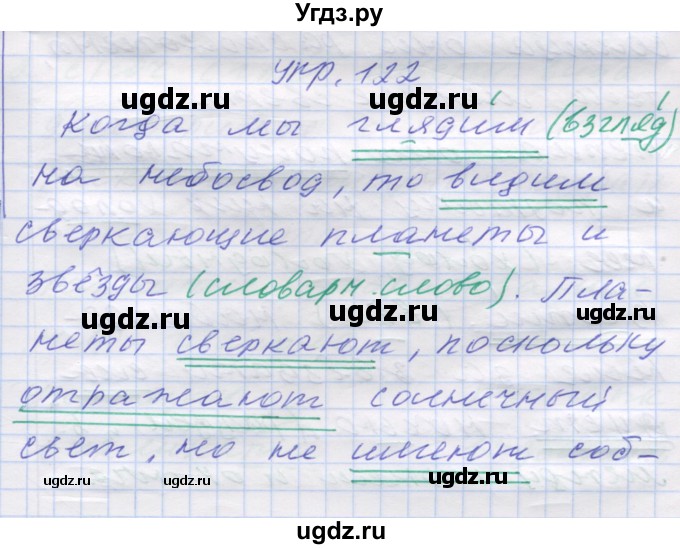 Угдз.ру
упр. 122
ugdz.ru ugdz.ru
Когда мы глядим (взгляд)
на небосвод, то видим
ugdz.ru ugdz.ru
сверкающие планеты и
звёзды (словарн. слово). Пла-
ugdz.ru ugdz.ru
неты сверкают, поскольку
отражают солнечный
ugdz.ru ugdz.ru
свет, но не имеют соб-
ugdz.ru ugdz.ru
ugdz.ru